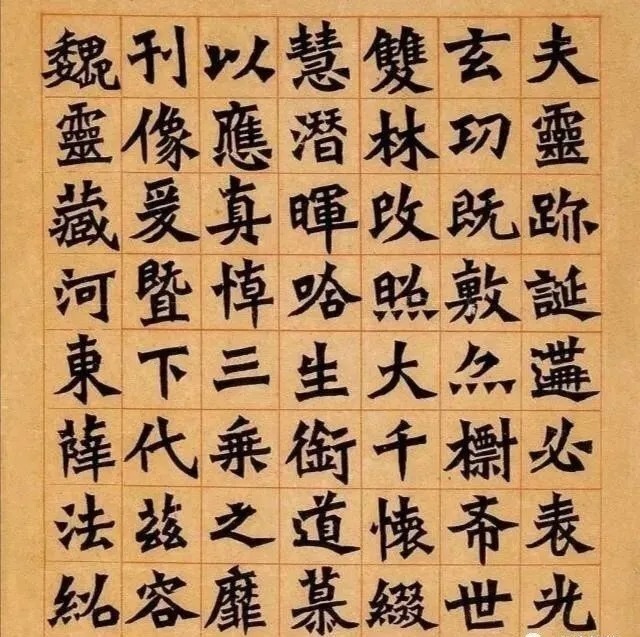 夫靈跡誕遘必表光
玄功既敷亦標希世
雙林改照大千懷綴
慧潛暉唅生銜道慕
以應真悼三乘之靡
刊像爰暨下代茲容
魏靈藏河東薛法紹